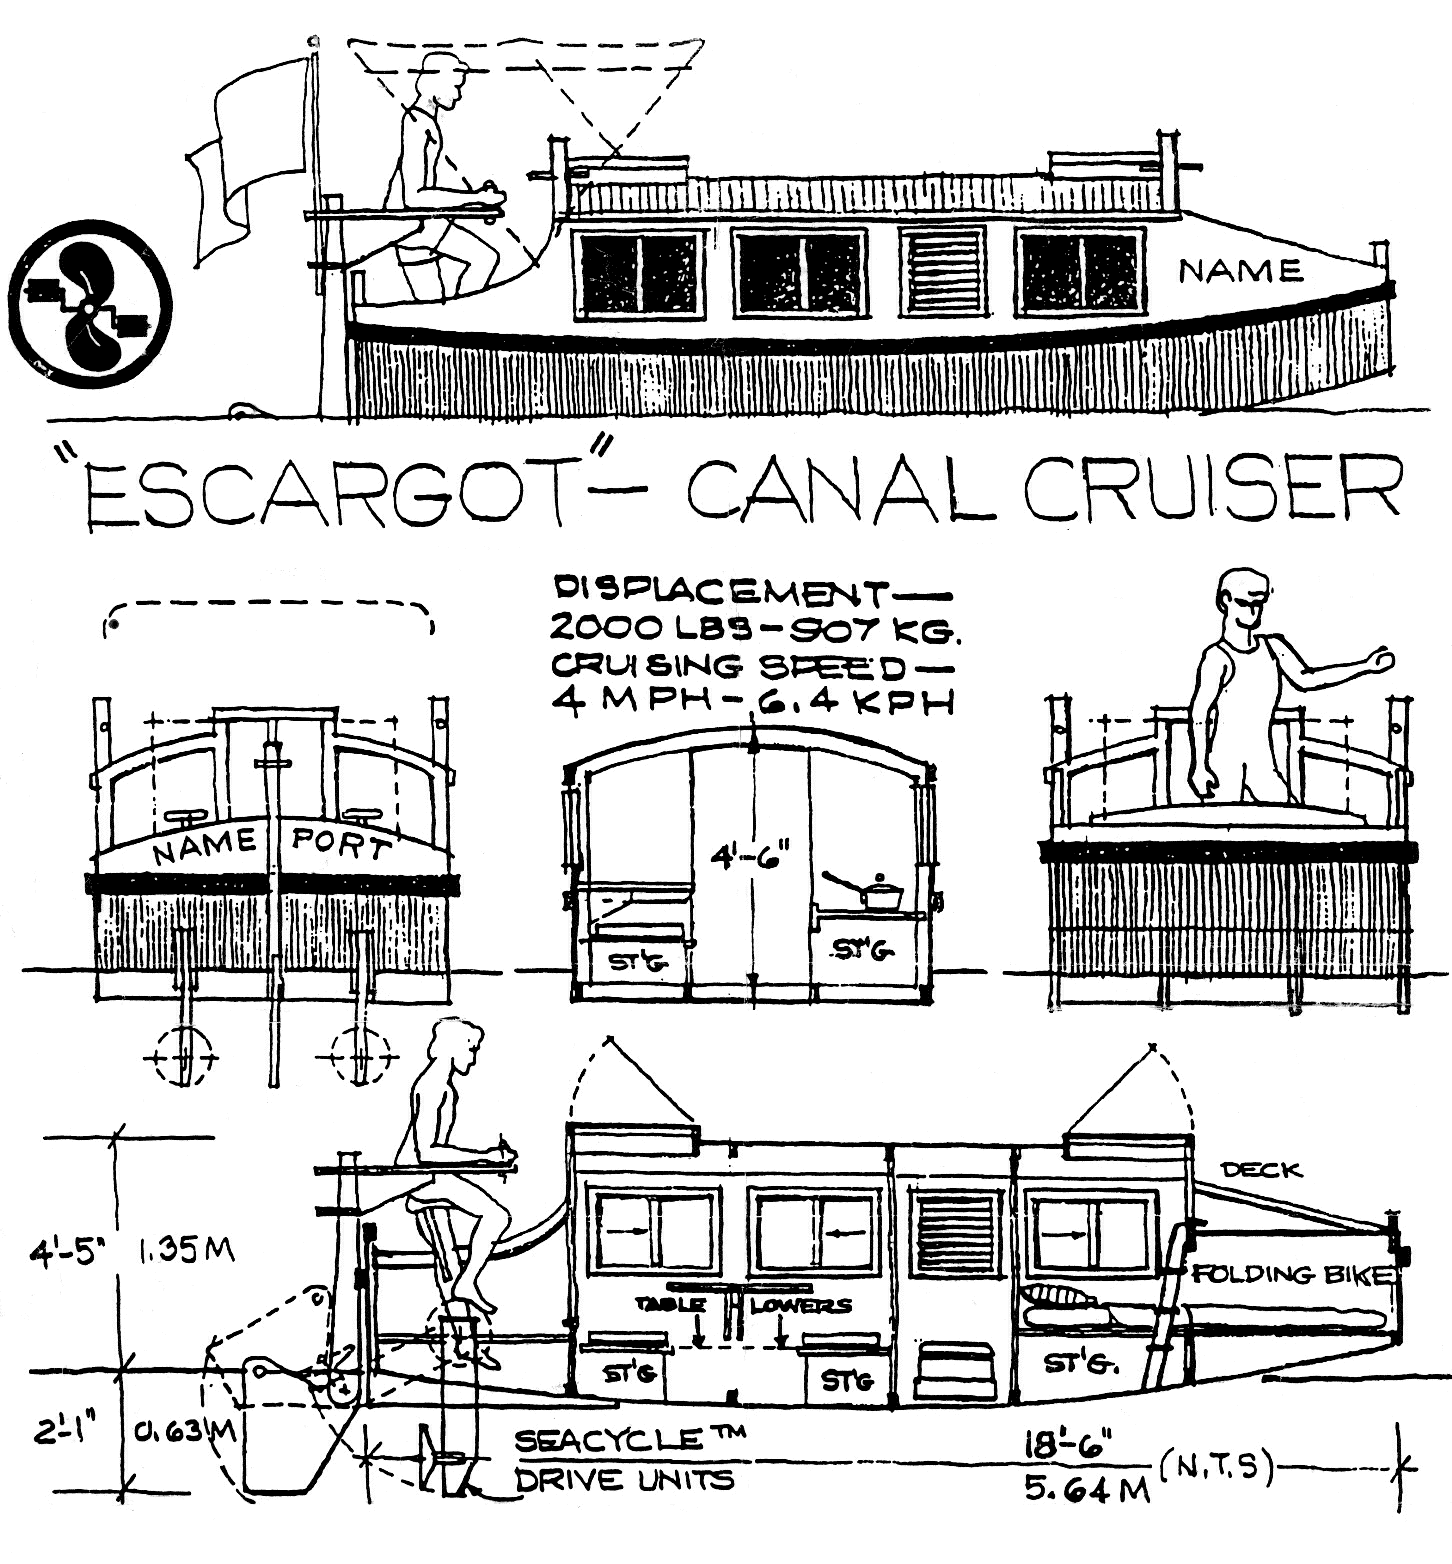 NAME
"ESCARGOT"— CANAL CRUISER
DISPLACEMENT—
2000 LBS-907 KG.
CRUISING SPEED—
4 MPH-6.4 KPH
NAME PORT
4'-6"
ST'G
ST'G
DECK
4'-5" 1.35M
FOLDING BIKE
TABLE LOWERS
ST'G
ST'G
ST'G.
2'-1" 0.63M
SEACYCLE™
DRIVE UNITS
18'-6"
5.64M
(N.T.S)